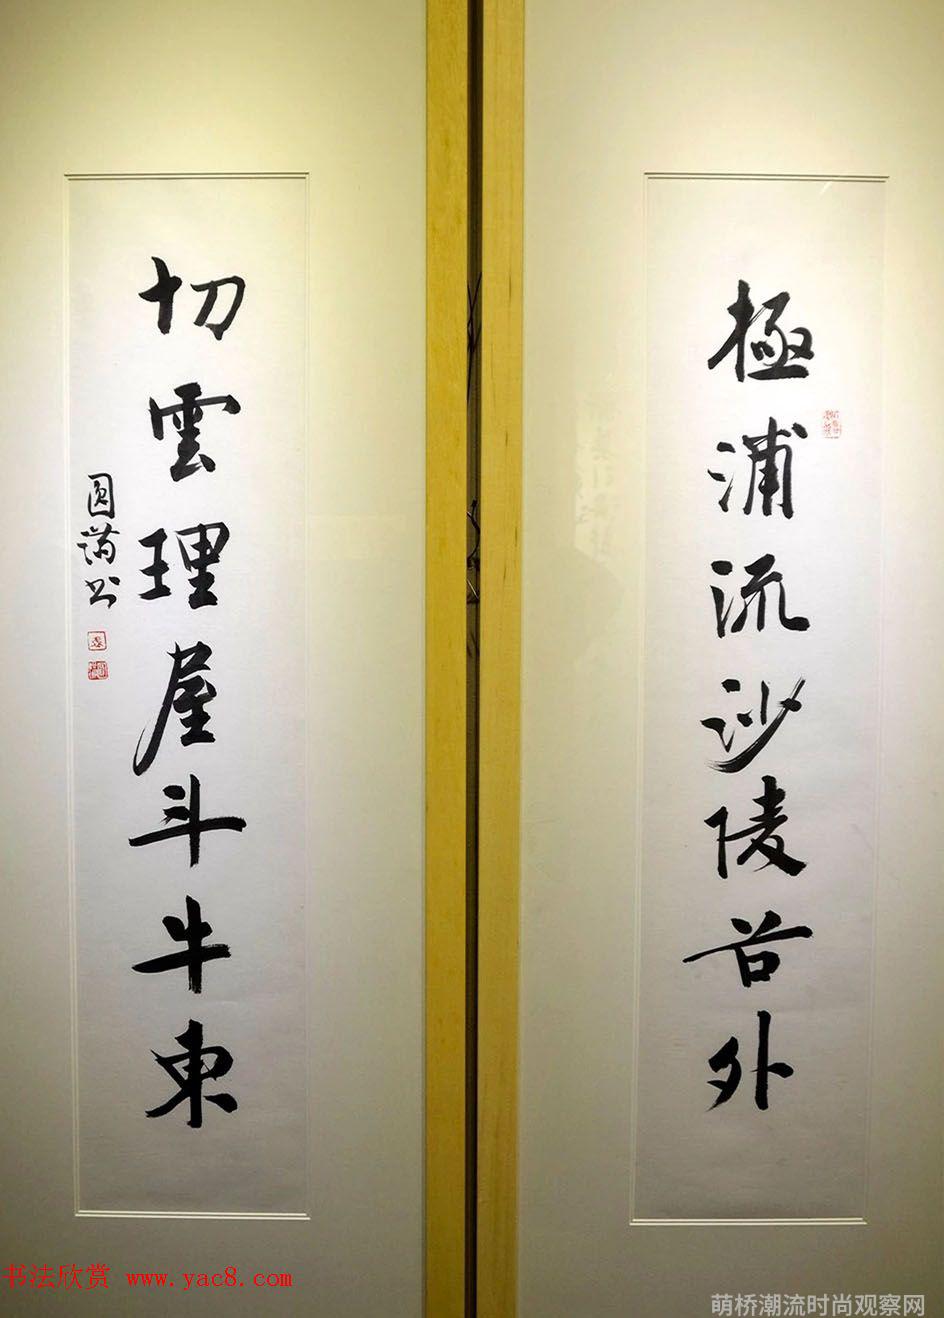 極浦流沙陵谷外
切雲理屋斗牛東
圆满书
书法欣赏 www.yac8.com
萌桥潮流时尚观察网